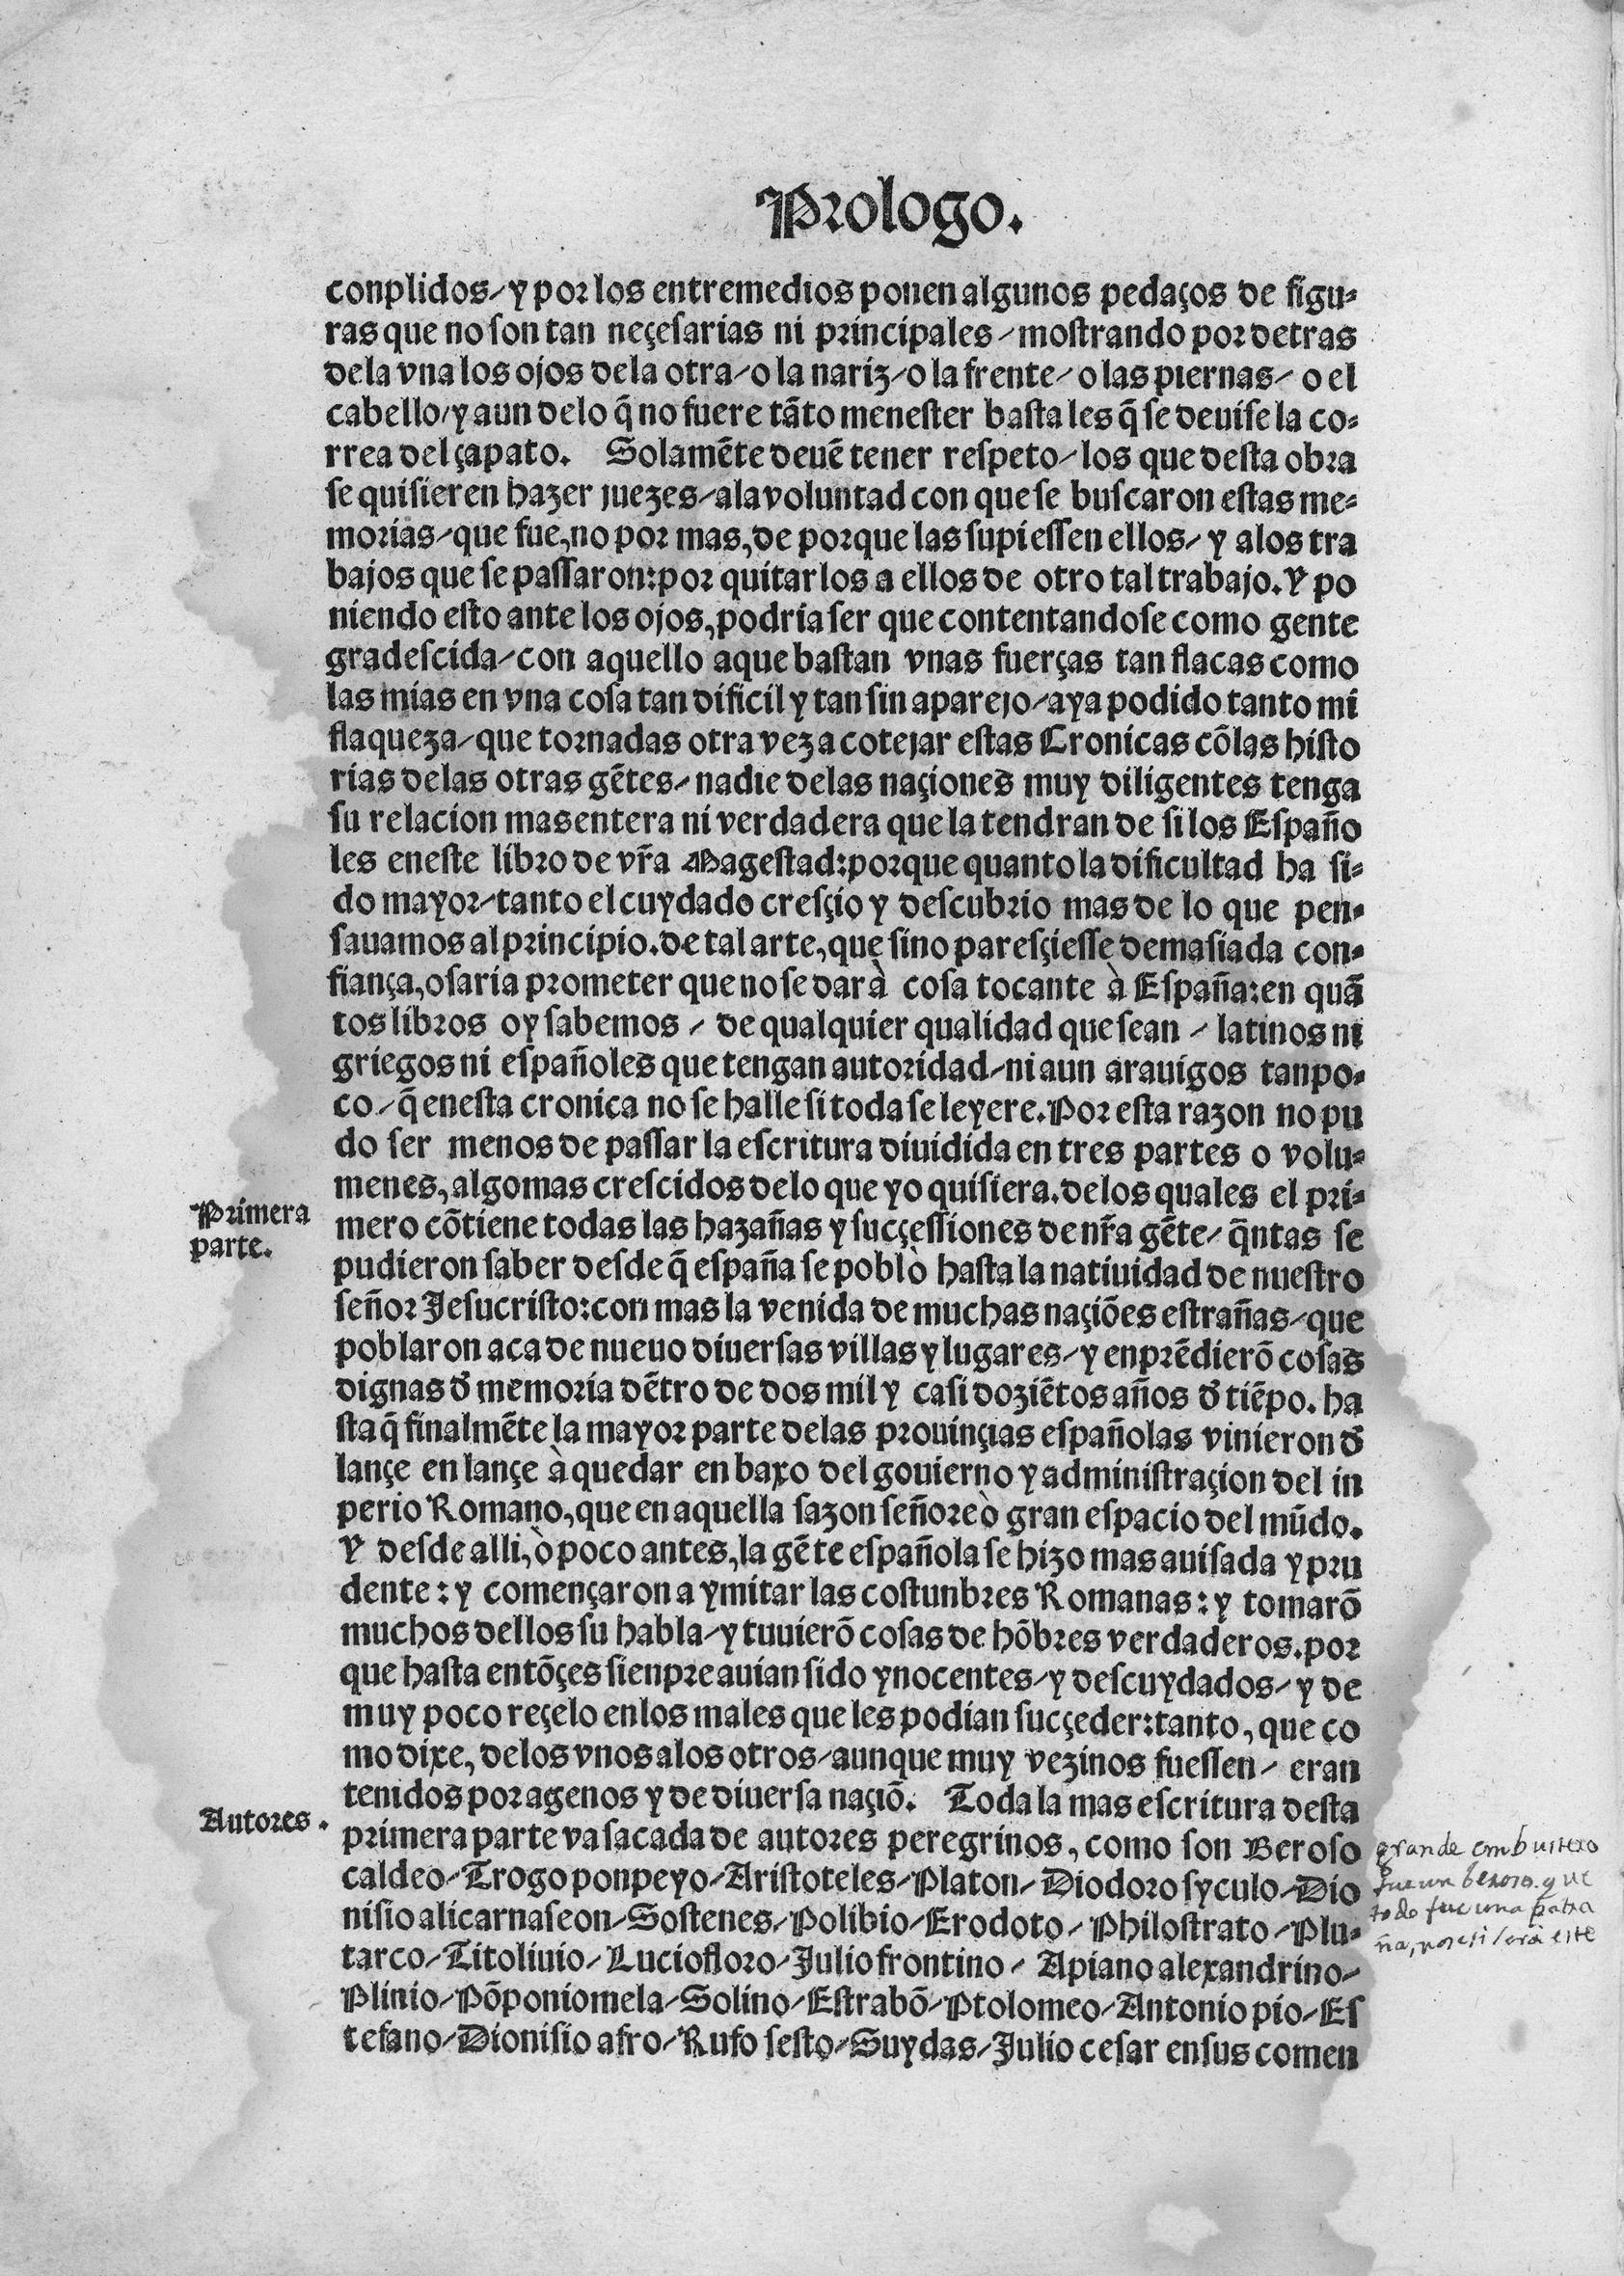 Prologo.
conplidos/y por los entremedios ponen algunos pedaços de figu-
ras que no son tan neçesarias ni principales/mostrando por detras
dela vna los ojos dela otra/o la nariz/o la frente/o las piernas/ o el
cabello/y aun delo q̃ no fuere tãto menester basta les q̃ se deuise la co-
rrea del çapato. Solamẽte deuẽ tener respeto/los que desta obra
se quisieren hazer juezes/ala voluntad con que se buscaron estas me-
morias/que fue,no por mas,de porque las supiessen ellos/ y alos tra
bajos que se passaron:por quitarlos a ellos de otro tal trabajo.Y po
niendo esto ante los ojos,podria ser que contentandose como gente
gradescida/con aquello aque bastan vnas fuerças tan flacas como
las mias en vna cosa tan dificil y tan sin aparejo/aya podido tanto mi
flaqueza/que tornadas otra vez a cotejar estas Cronicas cõlas histo
rias delas otras gẽtes/nadie delas naçiones muy diligentes tenga
su relacion mas entera ni verdadera que la tendran de si los Españo
les eneste libro de vr̃a Magestad:porque quanto la dificultad ha si-
do mayor/tanto el cuydado cresçio y descubrio mas de lo que pen-
sauamos al principio.de tal arte,que sino paresçiesse demasiada con-
fiança,osaria prometer que no se darà cosa tocante à España:en quã
tos libros oy sabemos / de qualquier qualidad que sean / latinos ni
griegos ni españoles que tengan autoridad/ni aun arauigos tanpo-
co/q̃ enesta cronica no se halle si toda se leyere.Por esta razon no pu
do ser menos de passar la escritura diuidida en tres partes o volu-
menes,algo mas crescidos delo que yo quisiera.delos quales el pri-
Primera
parte.
mero cõtiene todas las hazañas y sucçessiones de nr̃a gẽte/q̃ntas se
pudieron saber desde q̃ españa se poblò hasta la natiuidad de nuestro
señor Jesucristo:con mas la venida de muchas naçiões estrañas/que
poblaron aca de nueuo diuersas villas y lugares/y enprẽdierõ cosas
dignas d̃ memoria dẽtro de dos mil y casi doziẽtos años d̃ tiẽpo. ha
sta q̃ finalmẽte la mayor parte delas prouinçias españolas vinieron d̃
lançe en lançe à quedar en baxo del gouierno y administraçion del in
perio Romano,que en aquella sazon señoreò gran espacio del mũdo.
Y desde alli,ò poco antes,la gẽte española se hizo mas auisada y pru
dente:y començaron a ymitar las costunbres Romanas:y tomarõ
muchos dellos su habla/y tuuierõ cosas de hõbres verdaderos.por
que hasta entõçes sienpre auian sido ynocentes/y descuydados/y de
muy poco reçelo enlos males que les podian sucçeder:tanto,que co
mo dixe,delos vnos alos otros/aunque muy vezinos fuessen/ eran
tenidos por agenos y de diuersa naçiõ. Toda la mas escritura desta
Autores.
primera parte va sacada de autores peregrinos, como son Beroso
caldeo/Trogo ponpeyo/Aristoteles/Platon/Diodoro syculo/Dio
nisio alicarnaseon/Sostenes/Polibio/Erodoto/Philostrato/Plu-
tarco/Titoliuio/Luciofloro/Julio frontino/ Apiano alexandrino/
Plinio/Põponiomela/Solino/Estrabõ/Ptolomeo/Antonio pio/Es
tefano/Dionisio afro/Rufo sesto/Suydas/Julio cesar ensus comen
grande embustero
fue un beroso. que
todo fue una patra
ña, este